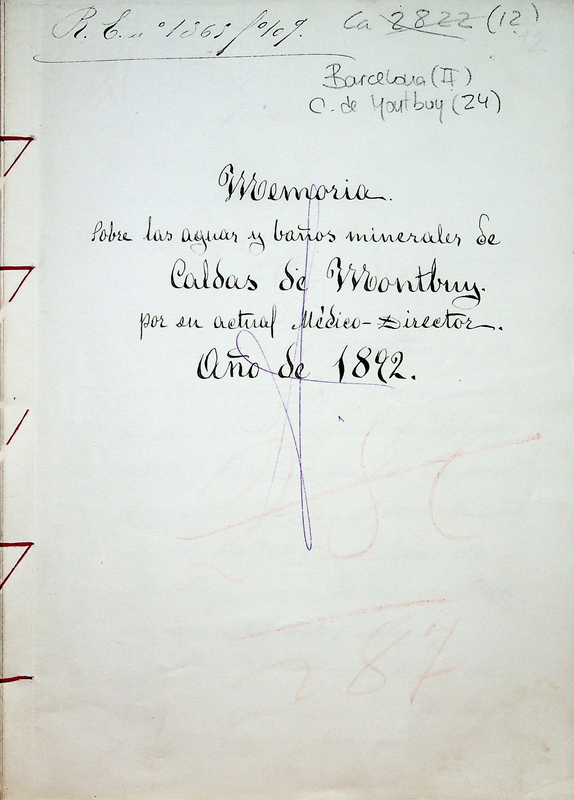 R. E. nº 1865 fº 109.
Ca 2822 (12)
Barcelona (II)
C. de Montbuy (24)
Memoria.
Sobre las aguas y baños minerales de
Caldas de Montbuy.
por su actual Médico-Director.
Año de 1892.
87